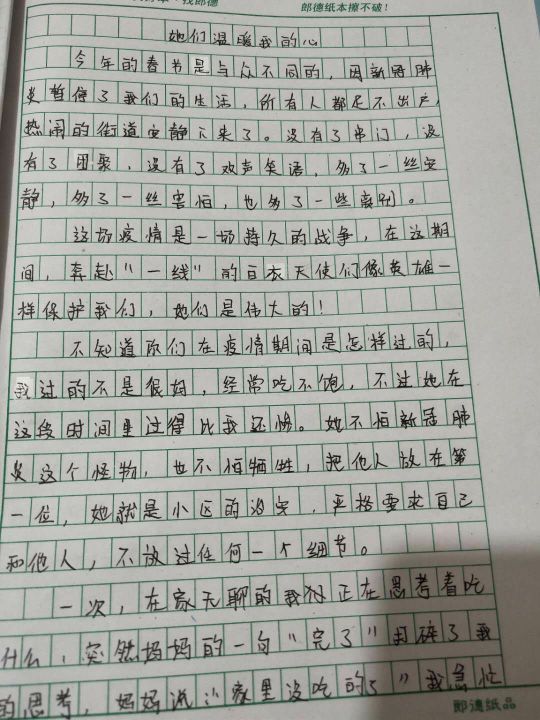 找郎德
郎德纸本擦不破!
她们温暖我的心
今年的春节是与众不同的,因新冠肺
炎暂停了我们的生活,所有人都足不出户,
热闹的街道安静下来了。没有了串门,没
有了团聚,没有了欢声笑语,多了一丝安
静,多了一丝害怕,也多了一些离别。
这场疫情是一场持久的战争,在这期
间,奔赴“一线”的白衣天使们像英雄一
样保护我们,她们是伟大的!
不知道你们在疫情期间是怎样过的,
我过的不是很好,经常吃不饱,不过她在
这段时间里过得比我还惨。她不怕新冠肺
炎这个怪物,也不怕牺牲,把他人放在第
一位,她就是小区的,严格要求自己
和他人,不放过任何一个细节。
一次,在家无聊的我正在思考着吃
什么,突然妈妈的一句“完了”打碎了我
的思考,妈妈说:“家里没吃的了”我急忙
郎德纸品